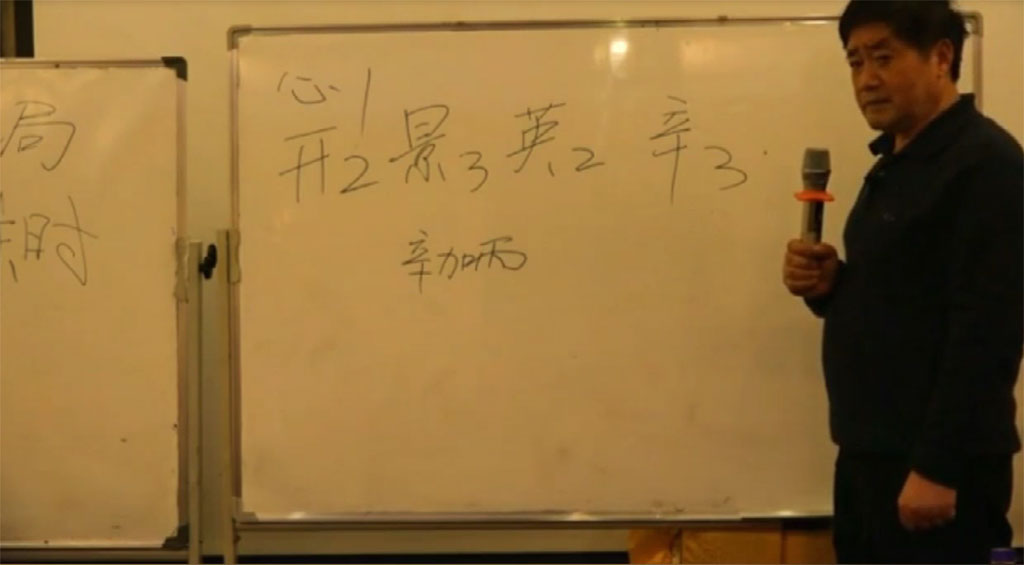 局
时
心1
开2 景3 英2 辛3
辛加丙